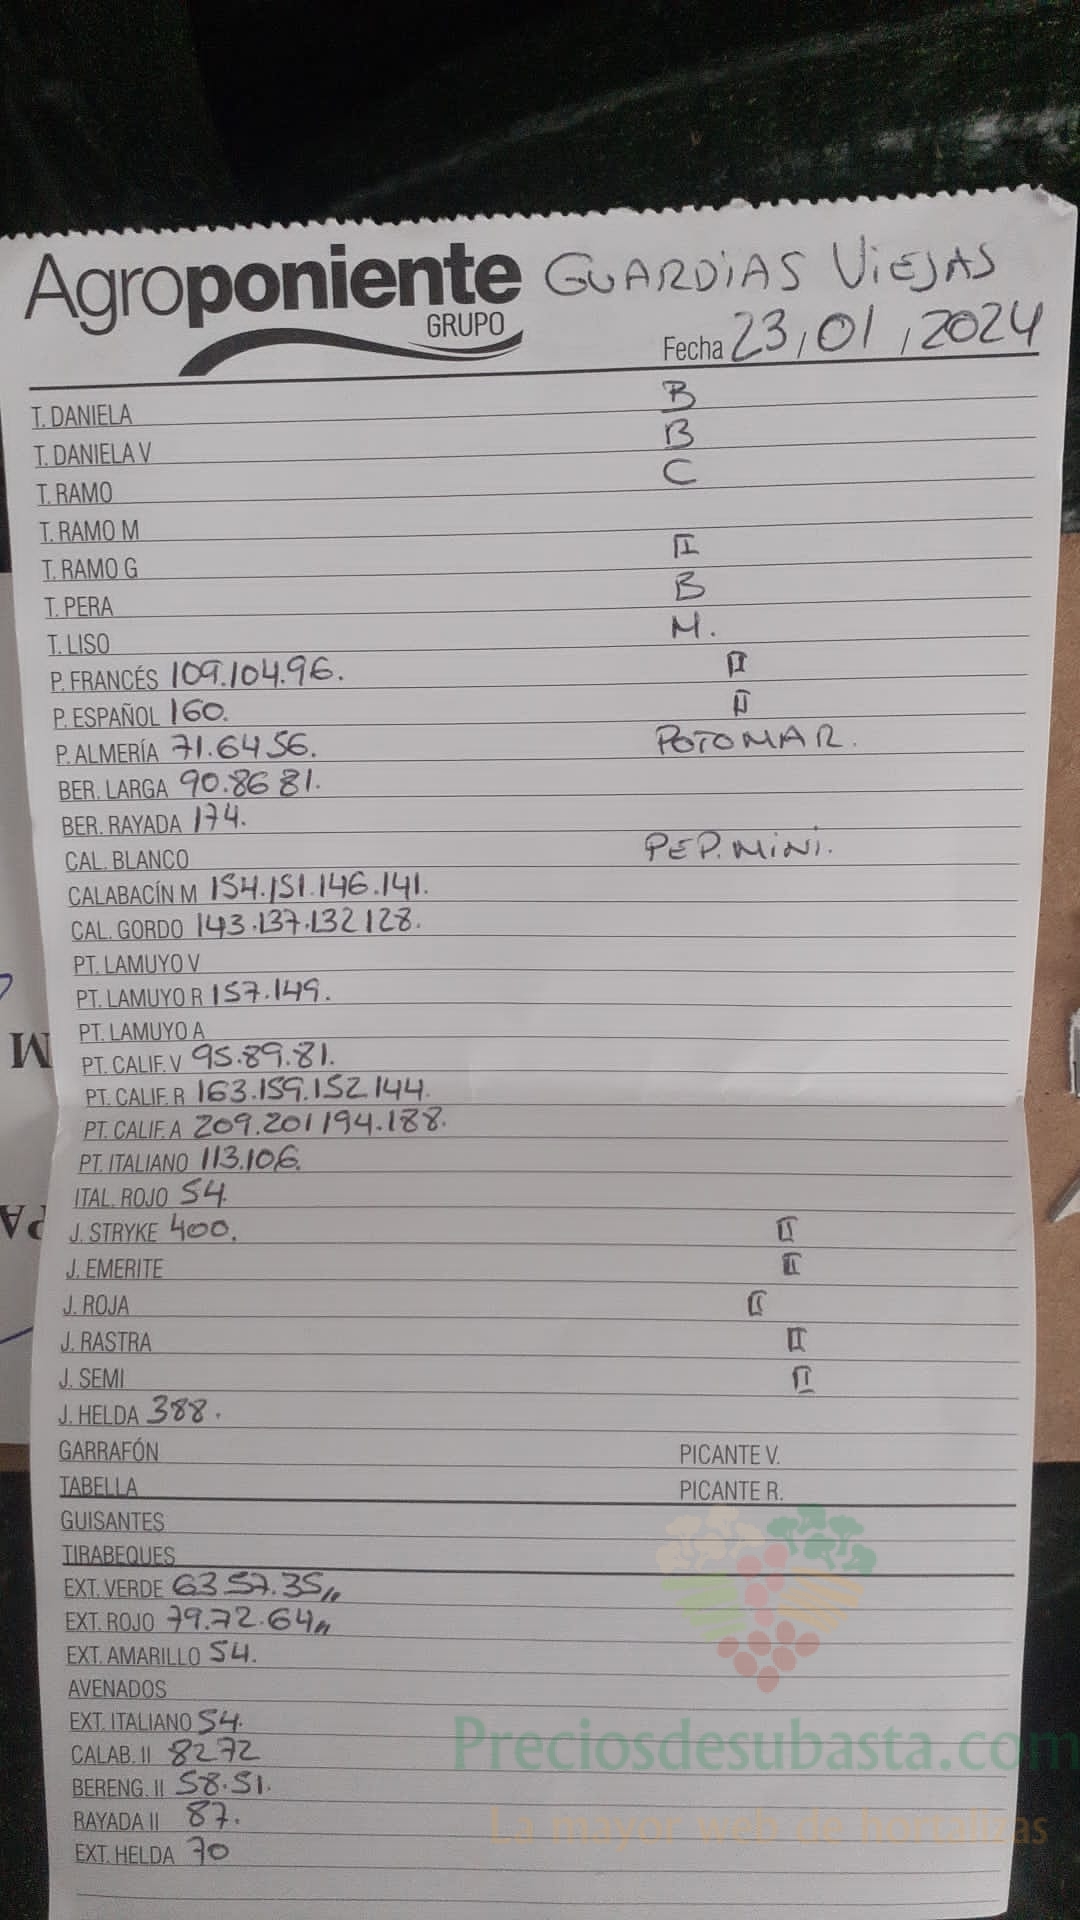 Agroponiente GUARDIAS VIEJAS
GRUPO
Fecha 23,01,2024
T. DANIELA B
T. DANIELA V B
T. RAMO C
T. RAMO M
T. RAMO G II
T. PERA B
T. LISO M.
P. FRANCÉS 109.104.96. II
P. ESPAÑOL 160. II
P. ALMERÍA 71.64 56. POTOMAR.
BER. LARGA 90.86 81.
BER. RAYADA 174.
CAL. BLANCO PEP. MINI.
CALABACÍN M 154.151.146.141.
CAL. GORDO 143.137.132 128.
PT. LAMUYO V
PT. LAMUYO R 157.149.
PT. LAMUYO A
PT. CALIF. V 95.89.81.
PT. CALIF. R 163.159.152 144.
PT. CALIF. A 209.201 194.188.
PT. ITALIANO 113.106.
ITAL. ROJO 54.
J. STRYKE 400. II
J. EMERITE II
J. ROJA II
J. RASTRA II
J. SEMI II
J. HELDA 388.
GARRAFÓN PICANTE V.
TABELLA PICANTE R.
GUISANTES
TIRABEQUES
EXT. VERDE 63 57.35,,
EXT. ROJO 79.72.64,,
EXT. AMARILLO 54.
AVENADOS
EXT. ITALIANO 54.
CALAB. II 82 72
BERENG. II 58.51.
RAYADA II 87.
EXT. HELDA 70
Preciosdesubasta.com
La mayor web de hortalizas